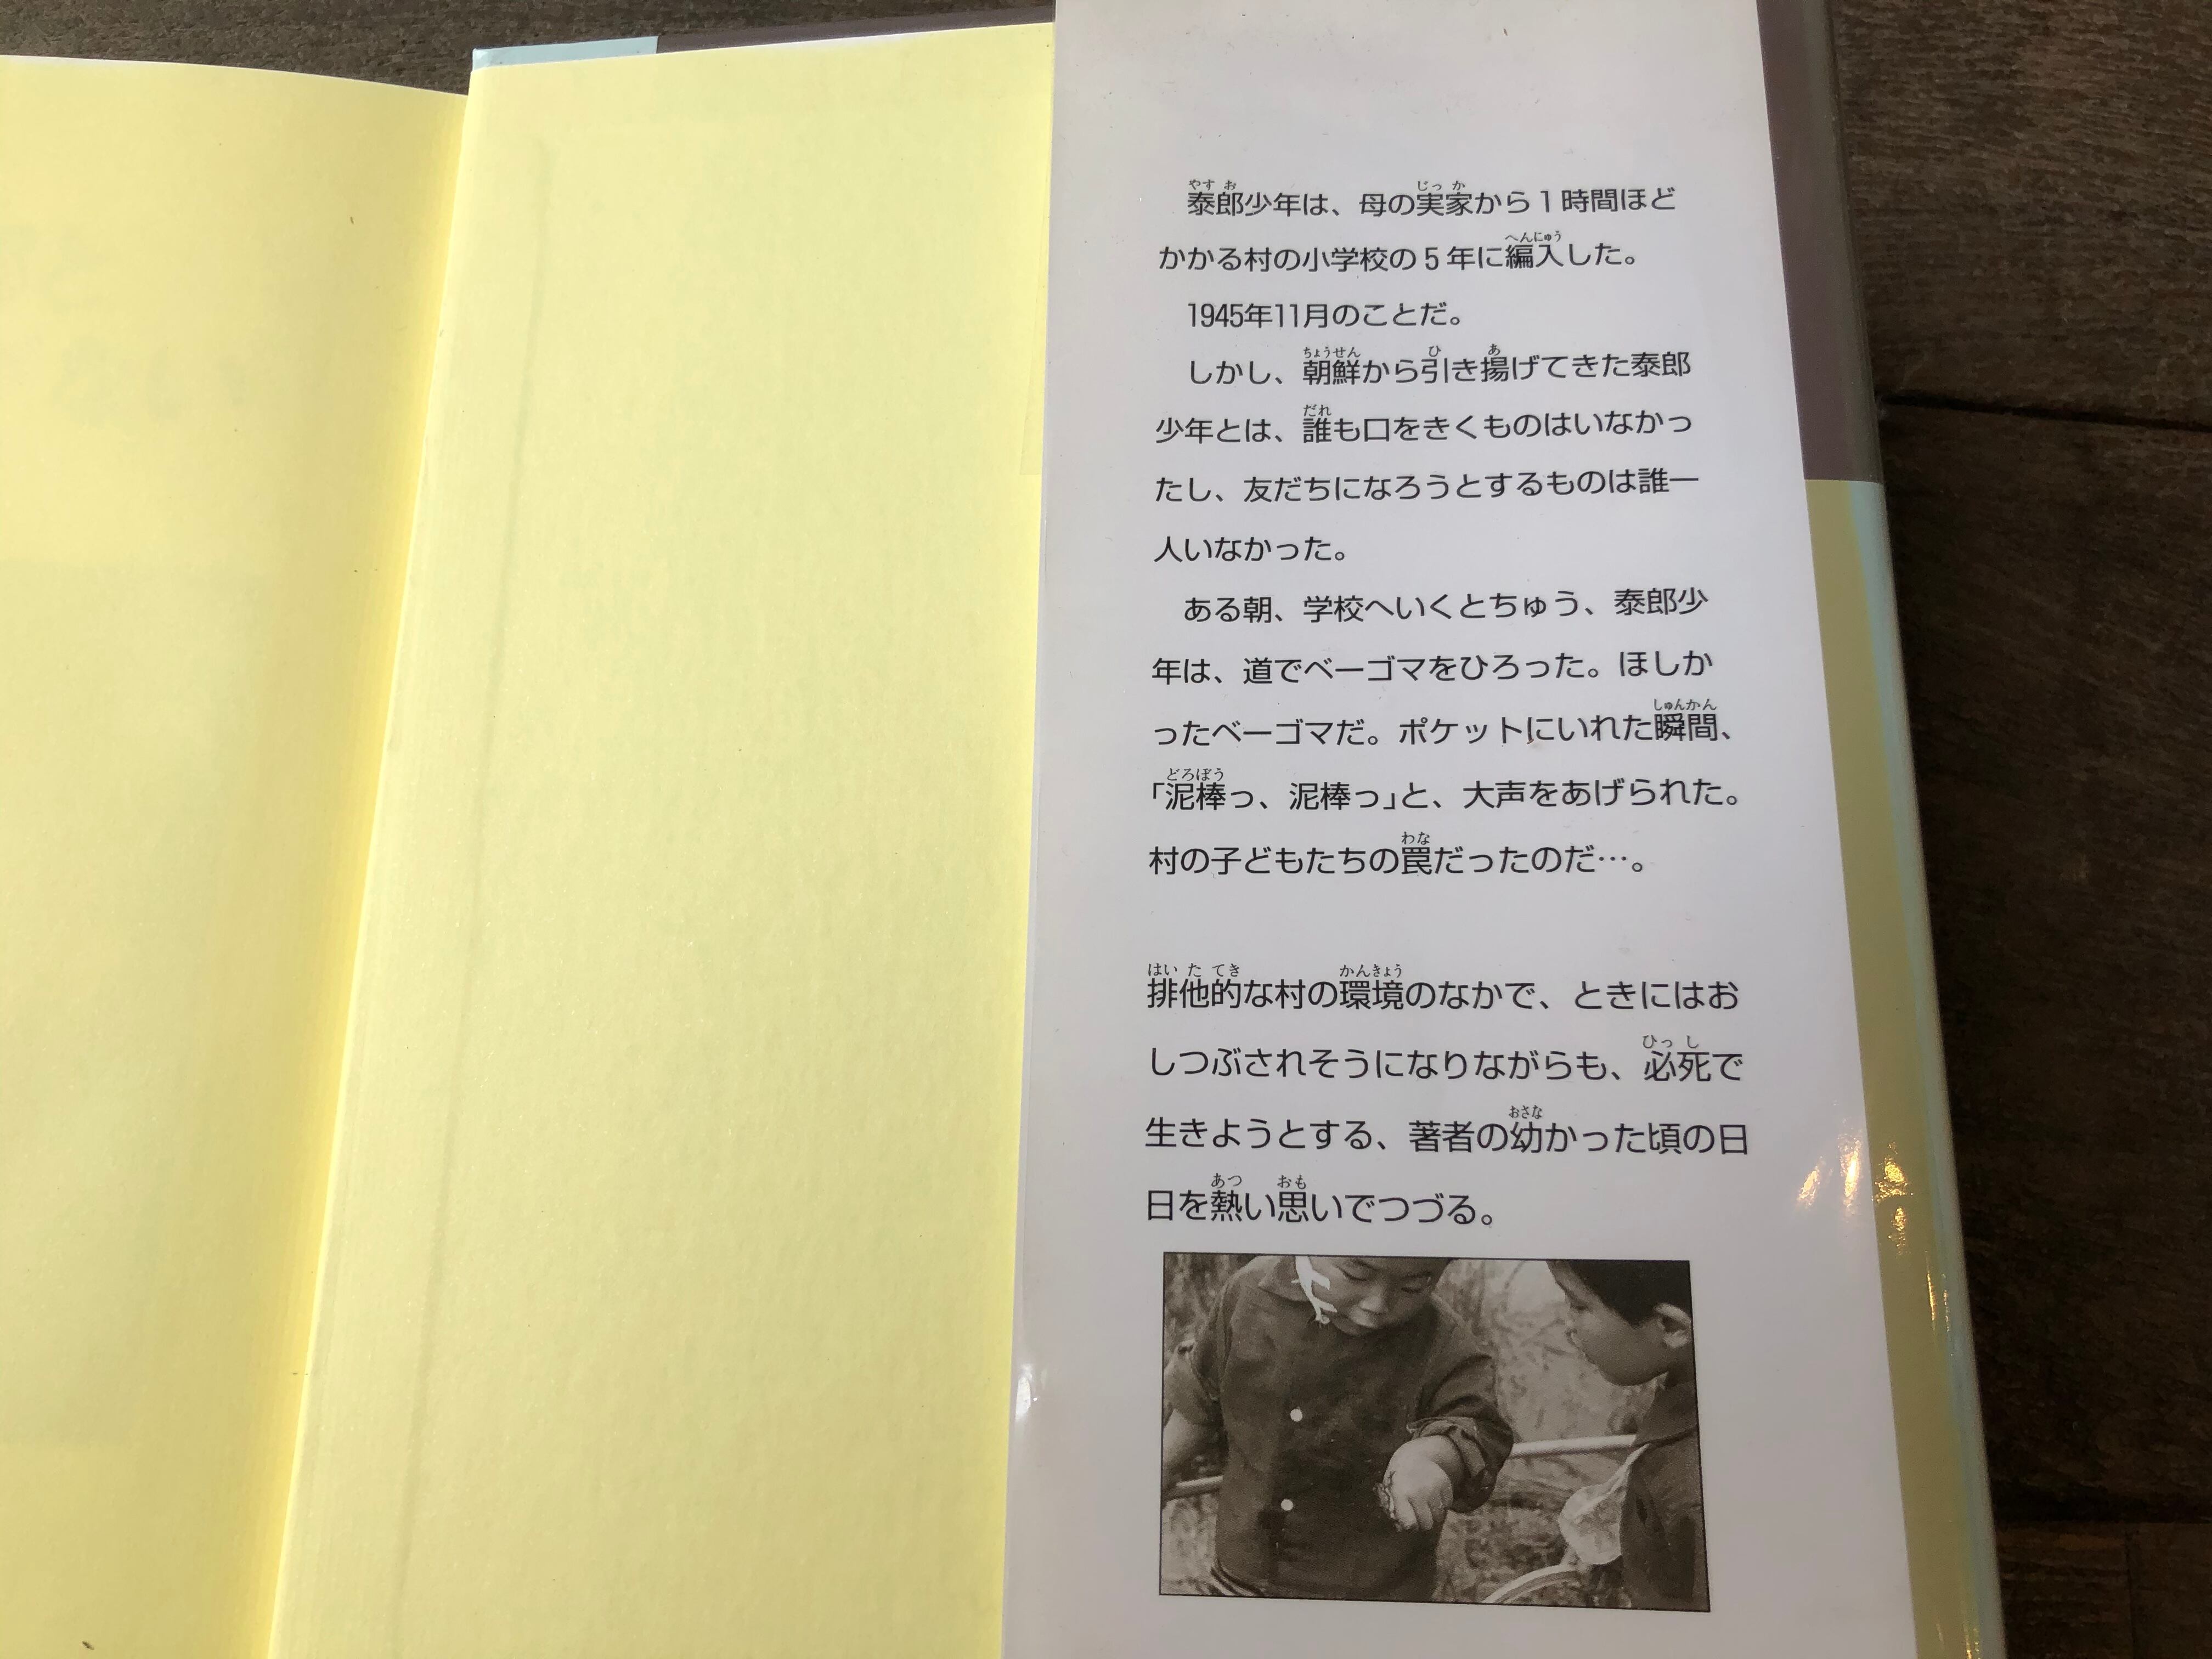 泰郎少年は、母の実家から1時間ほど
かかる村の小学校の5年に編入した。
1945年11月のことだ。
しかし、朝鮮から引き揚げてきた泰郎
少年とは、誰も口をきくものはいなかっ
たし、友だちになろうとするものは誰一
人いなかった。
ある朝、学校へいくとちゅう、泰郎少
年は、道でベーゴマをひろった。ほしか
ったベーゴマだ。ポケットにいれた瞬間、
「泥棒っ、泥棒っ」と、大声をあげられた。
村の子どもたちの罠だったのだ…。
排他的な村の環境のなかで、ときにはお
しつぶされそうになりながらも、必死で
生きようとする、著者の幼かった頃の日
日を熱い思いでつづる。